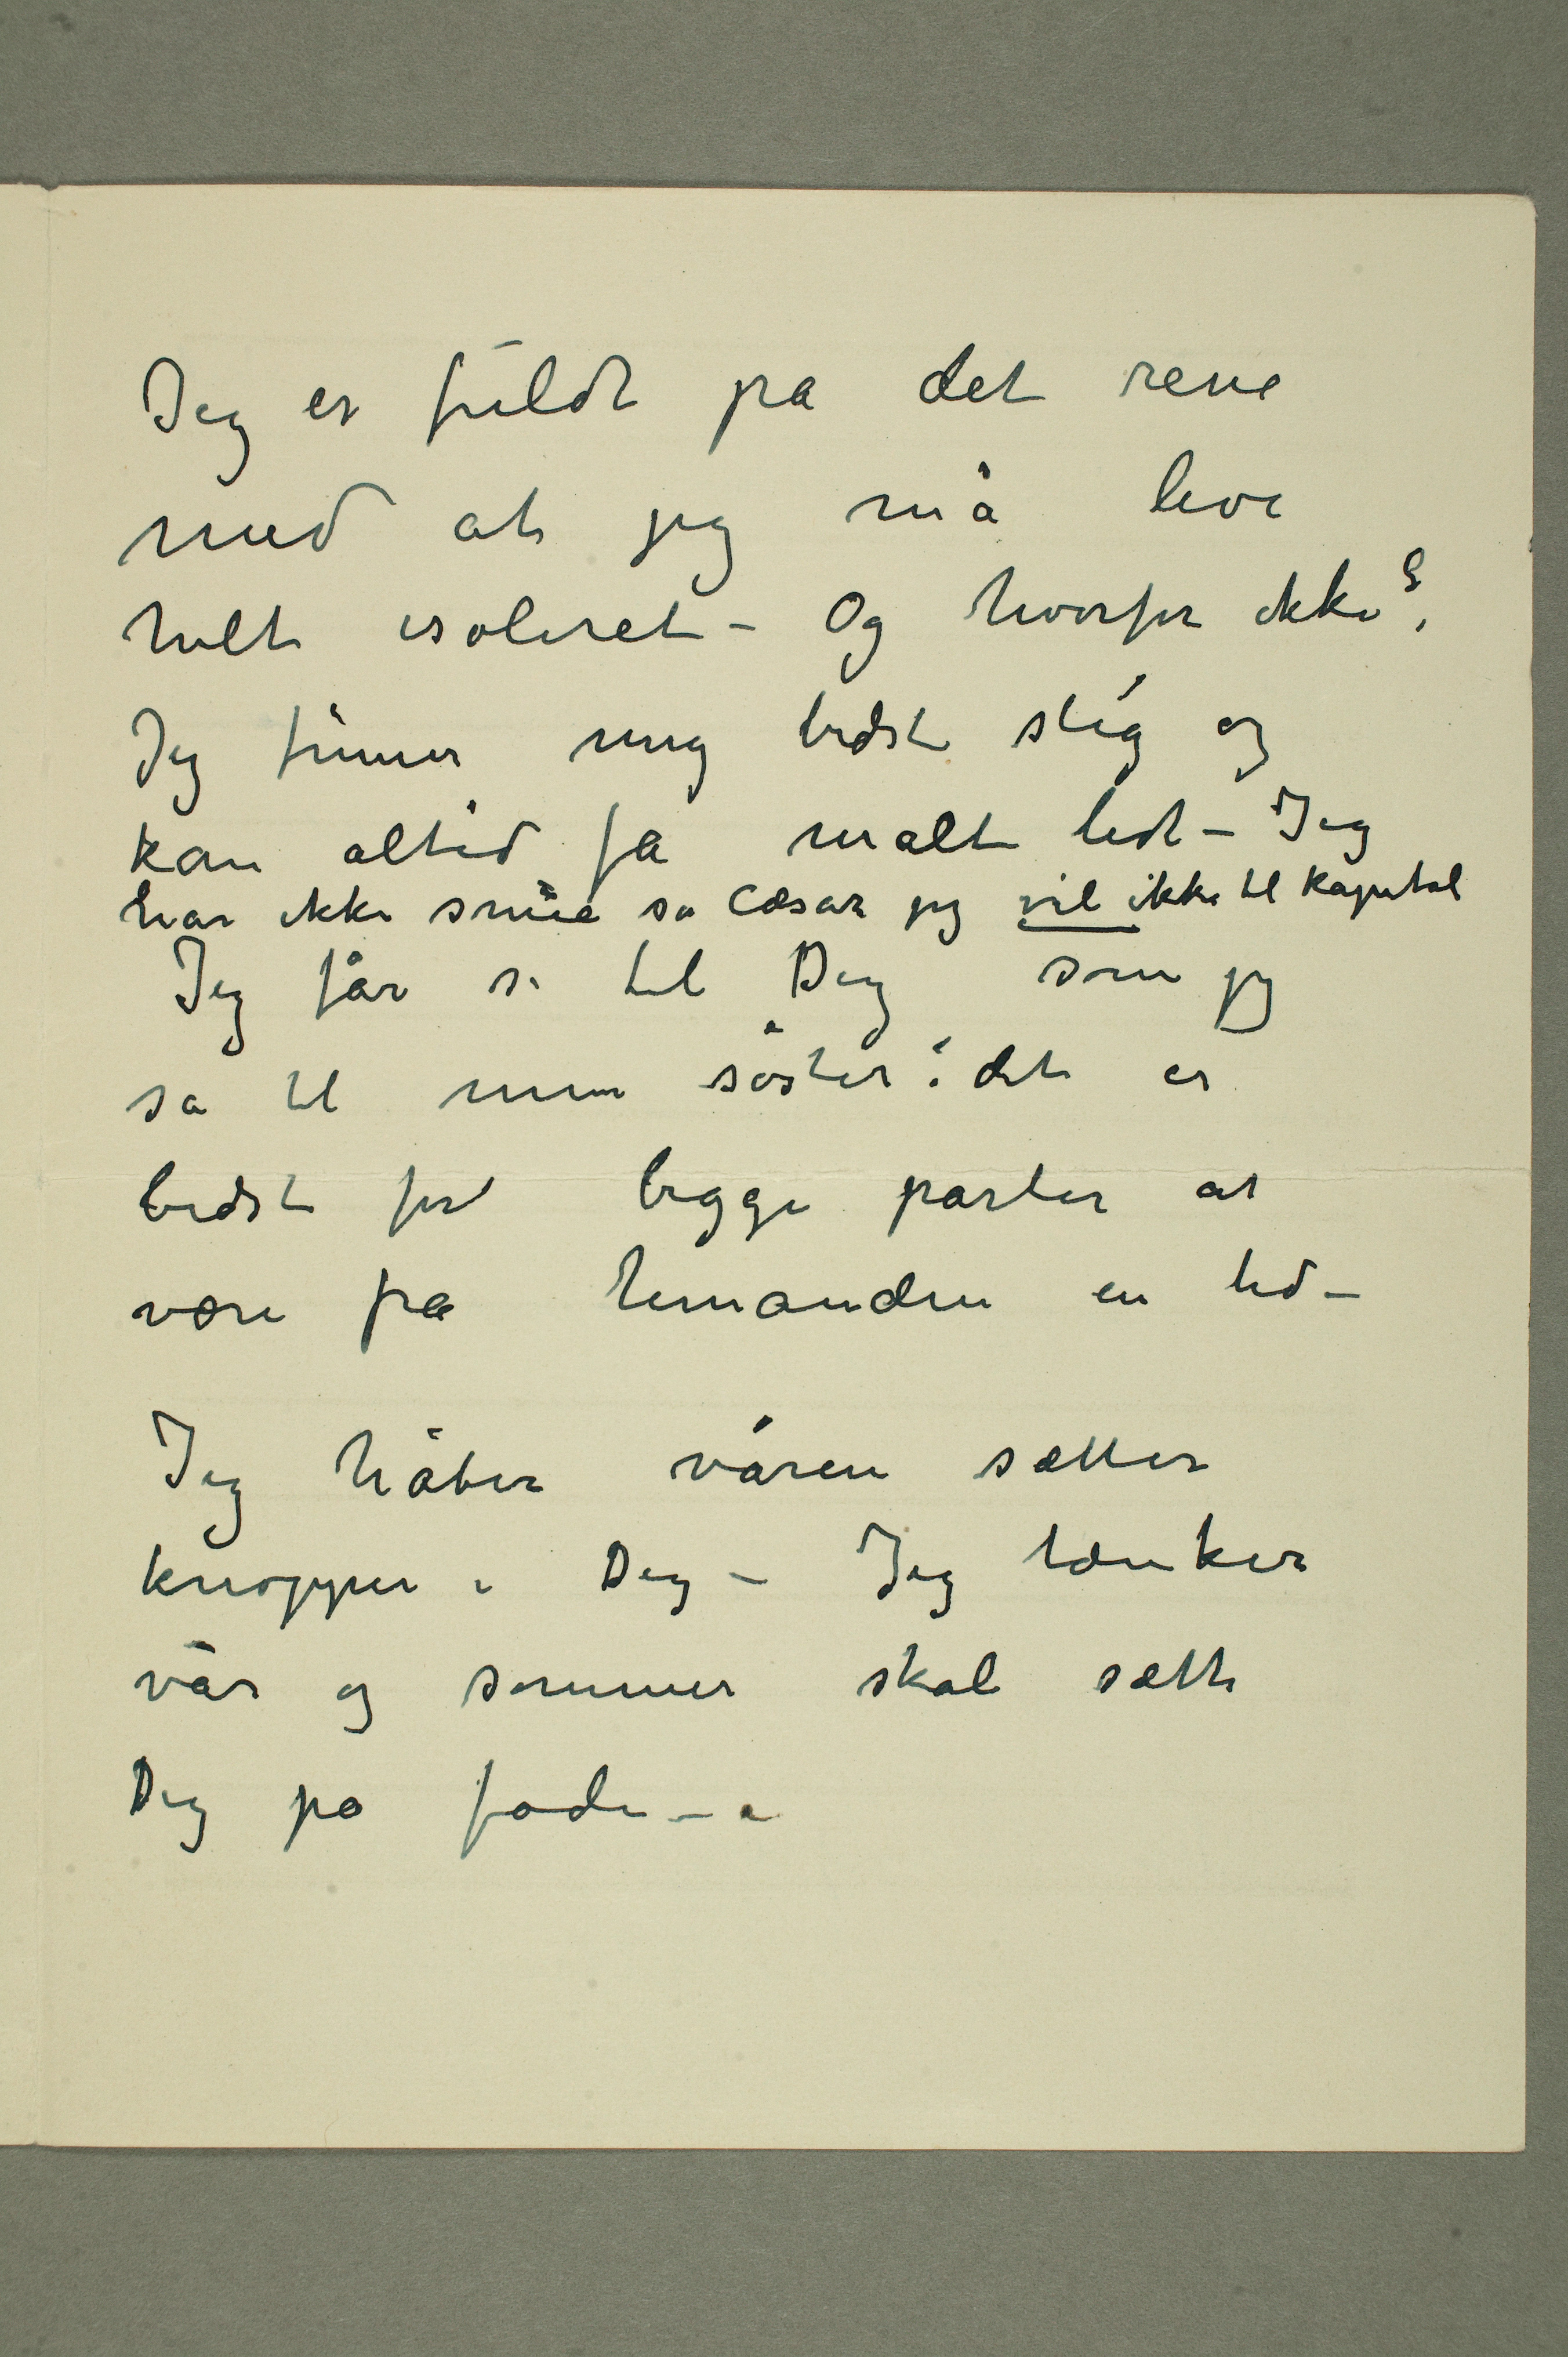 Jeg er fuldt på det rene
med at jeg må leve
helt isoleret – Og hvorfor ikke?
Jeg finner mig bedst slig og
kan altid få malt lidt – Jeg
har ikke snue så Cæsar jeg vil ikke til Kapitol
Jeg får si til Dig som jeg
sa til min söster: det er
bedst for begge parter at
være fra hinanden en tid –
Jeg håber våren sætter
knopper i Dig – Jeg tænker
vår og sommer skal sætte
Dig på fode –